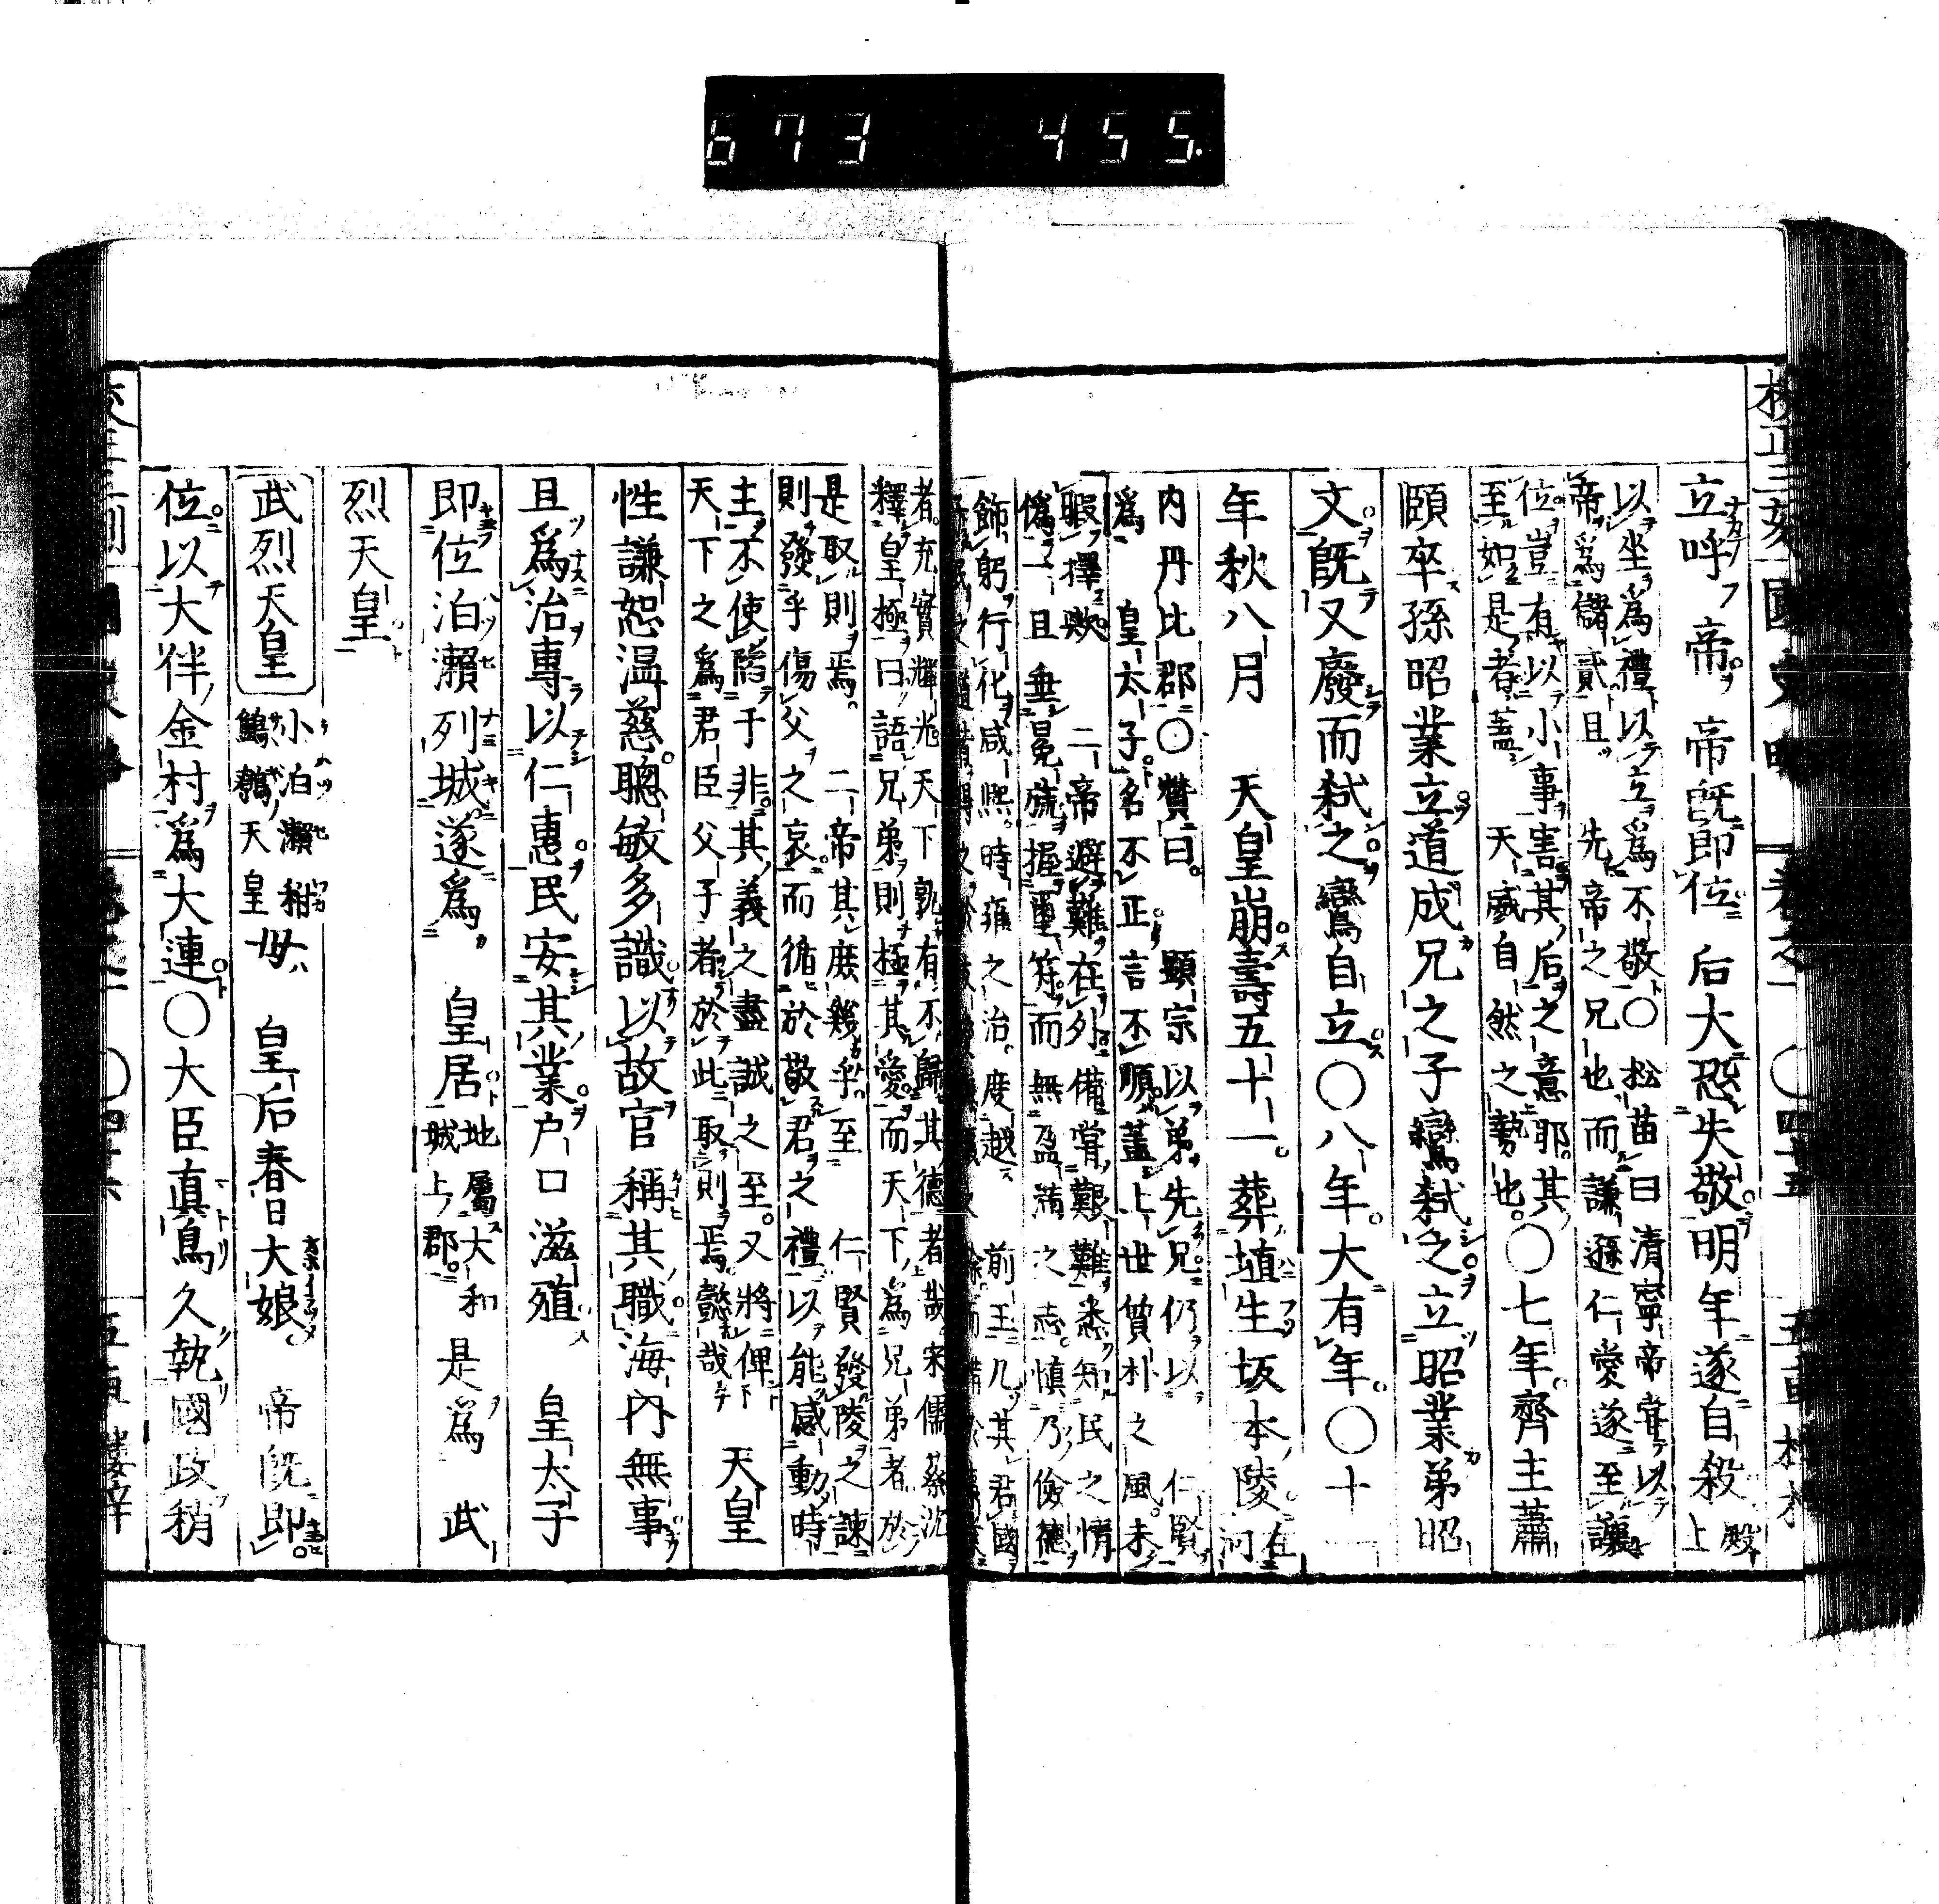 673 455.
立呼帝帝既即位后大恐失敬明年遂自殺殿上
以坐爲禮以立爲不敬〇松苗曰清寧帝嘗以
帝爲儲貳且先帝之兄也而謙遜仁愛遂至讓
位豈有以小事害其后之意耶其
至如是者蓋天威自然之勢也〇七年齊主蕭
頤卒孫昭業立道成兄之子鸞弑之立昭業弟昭
文既又廢而弑之鸞自立〇八年大有年〇十一
年秋八月天皇崩壽五十一葬埴生坂本陵在河
内丹比郡〇贊曰顯宗以弟先兄仍以仁賢
爲皇太子名不正言不順蓋上世質朴之風未
暇擇歟二帝避難在外備嘗艱難悉知民之情
僞一旦垂冕旒握璽符而無盈滿之志慎乃儉德
飾躬行化咸熙時雍之治度越前王凡其君國
者充實輝光天下孰有不歸其德者哉宋儒蔡沈
釋皇極曰語兄弟則極其愛而天下爲兄弟者於
是取則焉二帝其庶幾乎至仁賢發陵之諫
則發乎傷父之哀而循於敬君之禮以能感動時
主不使陷于非其義之盡誠之至又將俾
天下之爲君臣父子者於此取則焉懿哉天皇
性謙恕温慈聰敏多識以故官稱其職海内無事
且爲治專以仁惠民安其業户口滋殖皇太子
即位泊瀬列城遂爲皇居地屬大和城上郡是爲武
烈天皇
武烈天皇小泊瀬稚鷦鷯天皇母皇后春日大娘帝既即
位以大伴金村爲大連〇大臣真鳥久執國政稍